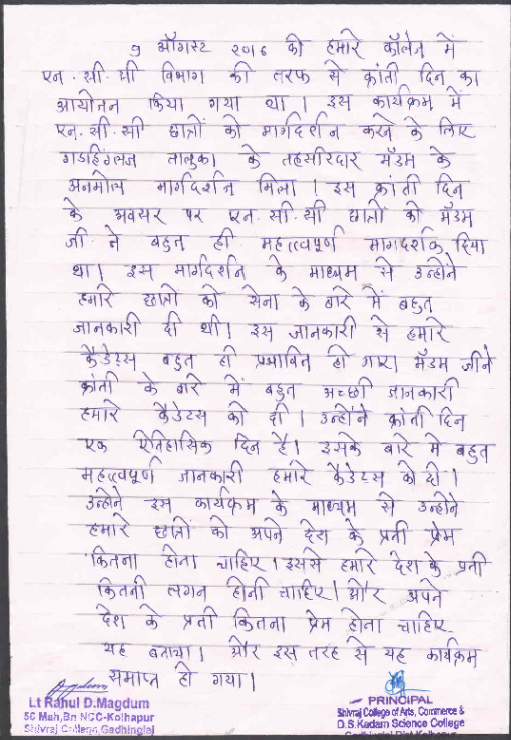 9 ऑगस्ट २०१६ को हमारे कॉलेज में
एन.सी.सी विभाग की तरफ से क्रांती दिन का
आयोजन किया गया था। इस कार्यक्रम में
एन.सी.सी छात्रों को मार्गदर्शन करने के लिए
गडहिंग्लज तालुका के तहसिलदार मॅडम के
अनमोल मार्गदर्शन मिला। इस क्रांती दिन
के अवसर पर एन.सी.सी छात्रों को मॅडम
जी ने बहुत ही महत्वपूर्ण मागदर्शक दिया
था। इस मार्गदर्शन के माध्यम से उन्होंने
हमारे छात्रों को सेना के बारे में बहुत
जानकारी दी थी। इस जानकारी से हमारे
कैडेट्स बहुत ही प्रभावित हो गए। मॅडम जीने
क्रांती के बारे में बहुत अच्छी जानकारी
हमारे कैडेटस को दी। उन्होंने क्रांती दिन
एक ऐतिहासिक दिन है। इसके बारे मे बहुत
महत्वपूर्ण जानकारी हमारे कैडेटस को दी।
उन्होंने इस कार्यक्रम के माध्यम से उन्होंने
हमारे छात्रों को अपने देश के प्रती प्रेम
कितना होना चाहिए। इससे हमारे देश के प्रती
कितनी लगन होनी चाहिए। और अपने
देश के प्रती कितना प्रेम होना चाहिए
यह बताया। और इस तरह से यह कार्यक्रम
समाप्त हो गया।
Lt Rahul D.Magdum
5C Mah,Bn NCC-Kolhapur
Shivraj College,Gadhinglaj
PRINCIPAL
Shivraj College of Arts, Commerce &
D.S.Kadam Science College
Gadhinglaj Dist.Kolhapur